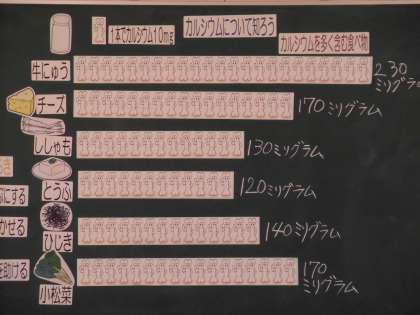 1本でカルシウム10mg
カルシウムについて知ろう
カルシウムを多く含む食べ物
牛にゅう
230
ミリグラム
チーズ
170 ミリグラム
ししゃも
130ミリグラム
とうふ
120ミリグラム
ひじき
140ミリグラム
小松菜
170
ミリグラム
にする
かせる
を助ける